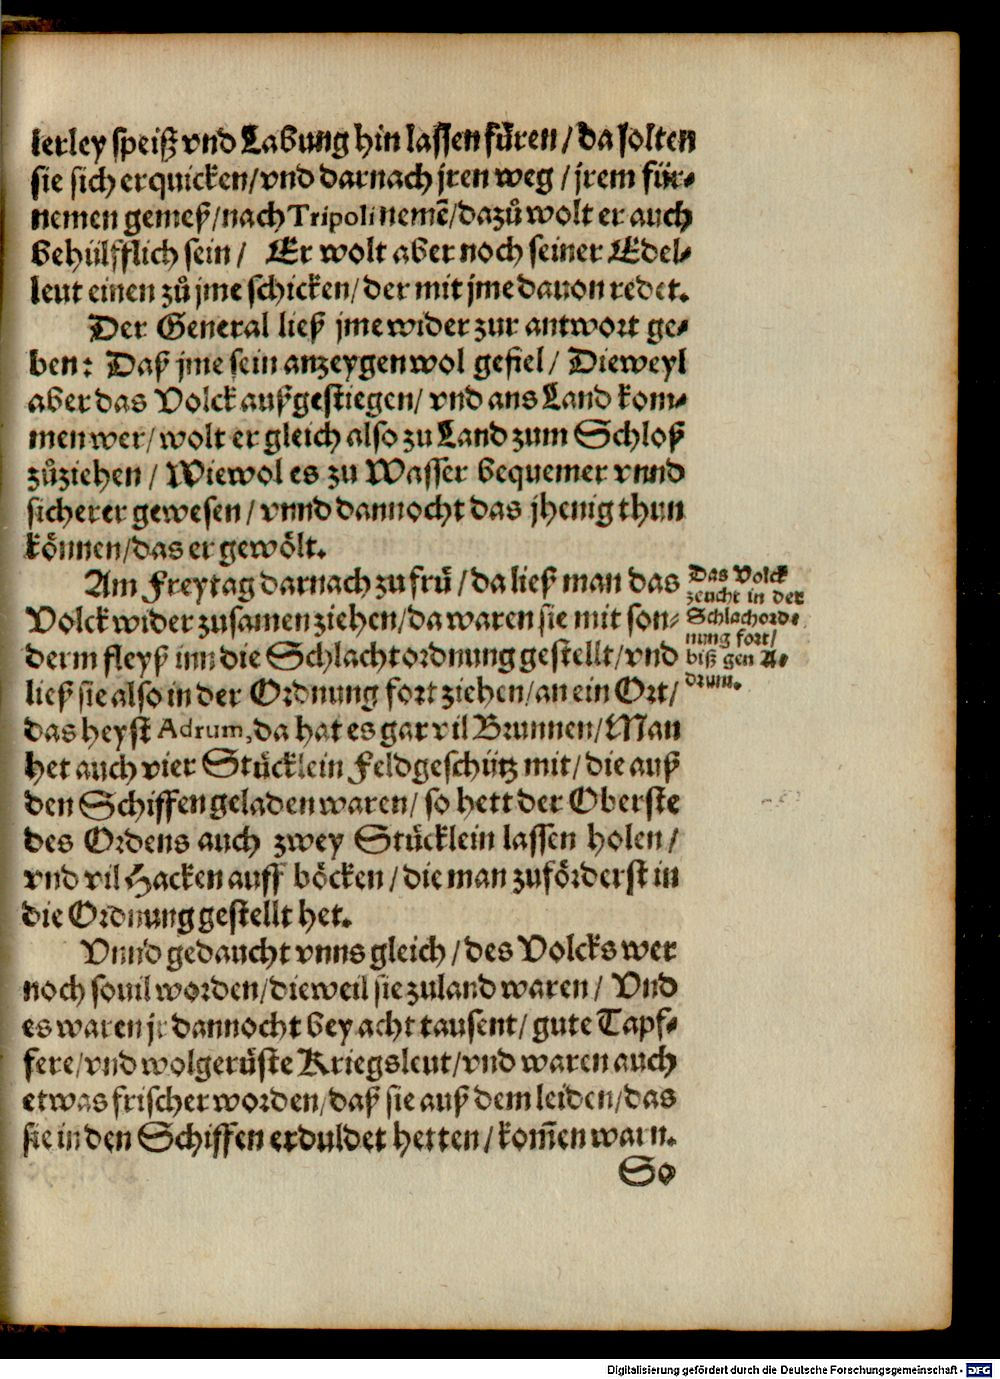 lerley speiß vnd Labung hin lassen fůren / da solten
sie sich erquicken / vnd darnach jren weg / jrem für⸗
nemen gemeß / nach Tripoli nemẽ / dazů wolt er auch
behülfflich sein / Er wolt aber noch seiner Edel⸗
leut einen zů jme schicken / der mit jme dauon redet.
Der General ließ jme wider zur antwort ge⸗
ben: Daß jme sein anzeygen wol gefiel / Dieweyl
aber das Volck außgestiegen / vnd ans Land kom⸗
men wer / wolt er gleich also zu Land zum Schloß
zůziehen / Wiewol es zu Wasser bequemer vnnd
sicherer gewesen / vnnd dannocht das jhenig thun
können / das er gewölt.
Am Freytag darnach zu frů / da ließ man das
Volck wider zusamen ziehen / da waren sie mit son⸗
derm fleyß inn die Schlachtordnung gestellt / vnd
ließ sie also in der Ordnung fort ziehen / an ein Ort /
das heyst Adrum, da hat es gar vil Brunnen / Man
het auch vier Stücklein Feldgeschütz mit / die auß
den Schiffen geladen waren / so hett der Oberste
des Ordens auch zwey Stücklein lassen holen /
vnd vil Hacken auff böcken / die man zuförderst in
die Ordnung gestellt het.
Vnnd gedaucht vnns gleich / des Volcks wer
noch souil worden / dieweil sie zuland waren / Vnd
es waren jr dannocht bey acht tausent / gute Tapf⸗
fere / vnd wolgerüste Kriegsleut / vnd waren auch
etwas frischer worden / daß sie auß dem leiden / das
sie in den Schiffen erduldet hetten / kom̃en warn.
So
Das Volck
zeucht in der
Schlachord⸗
nung fort /
biß gen A⸗
drum.
Digitalisierung gefördert durch die Deutsche Forschungsgemeinschaft - DFG